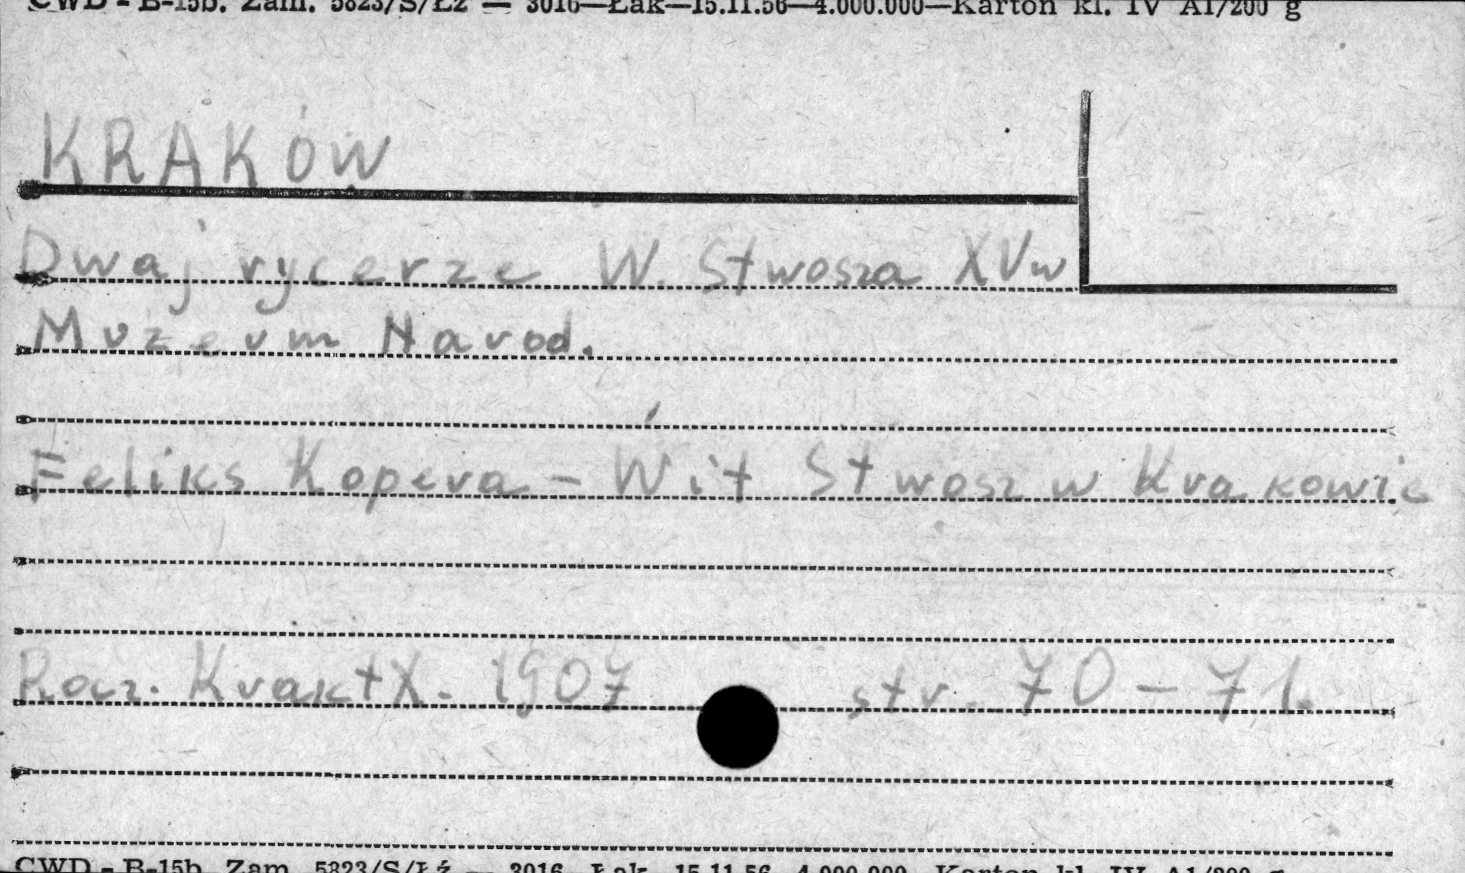 CWD - B-15b. Zam. 5823/S/Łź — 3016—Łak—15.11.56—4.000.000—Karton kl. IV A1/200 g
KRAKÓW
Dwaj rycerze W. Stwosza XVw
Muzeum Narod.
Feliks Kopera - Wit Stwosz w Krakowie
Rocz. Krak tX. 1907 str. 70-71.
CWD - B-15b. Zam. 5823/S/Łź — 3016—Łak—15.11.56—4.000.000—Karton kl. IV A1/200 g